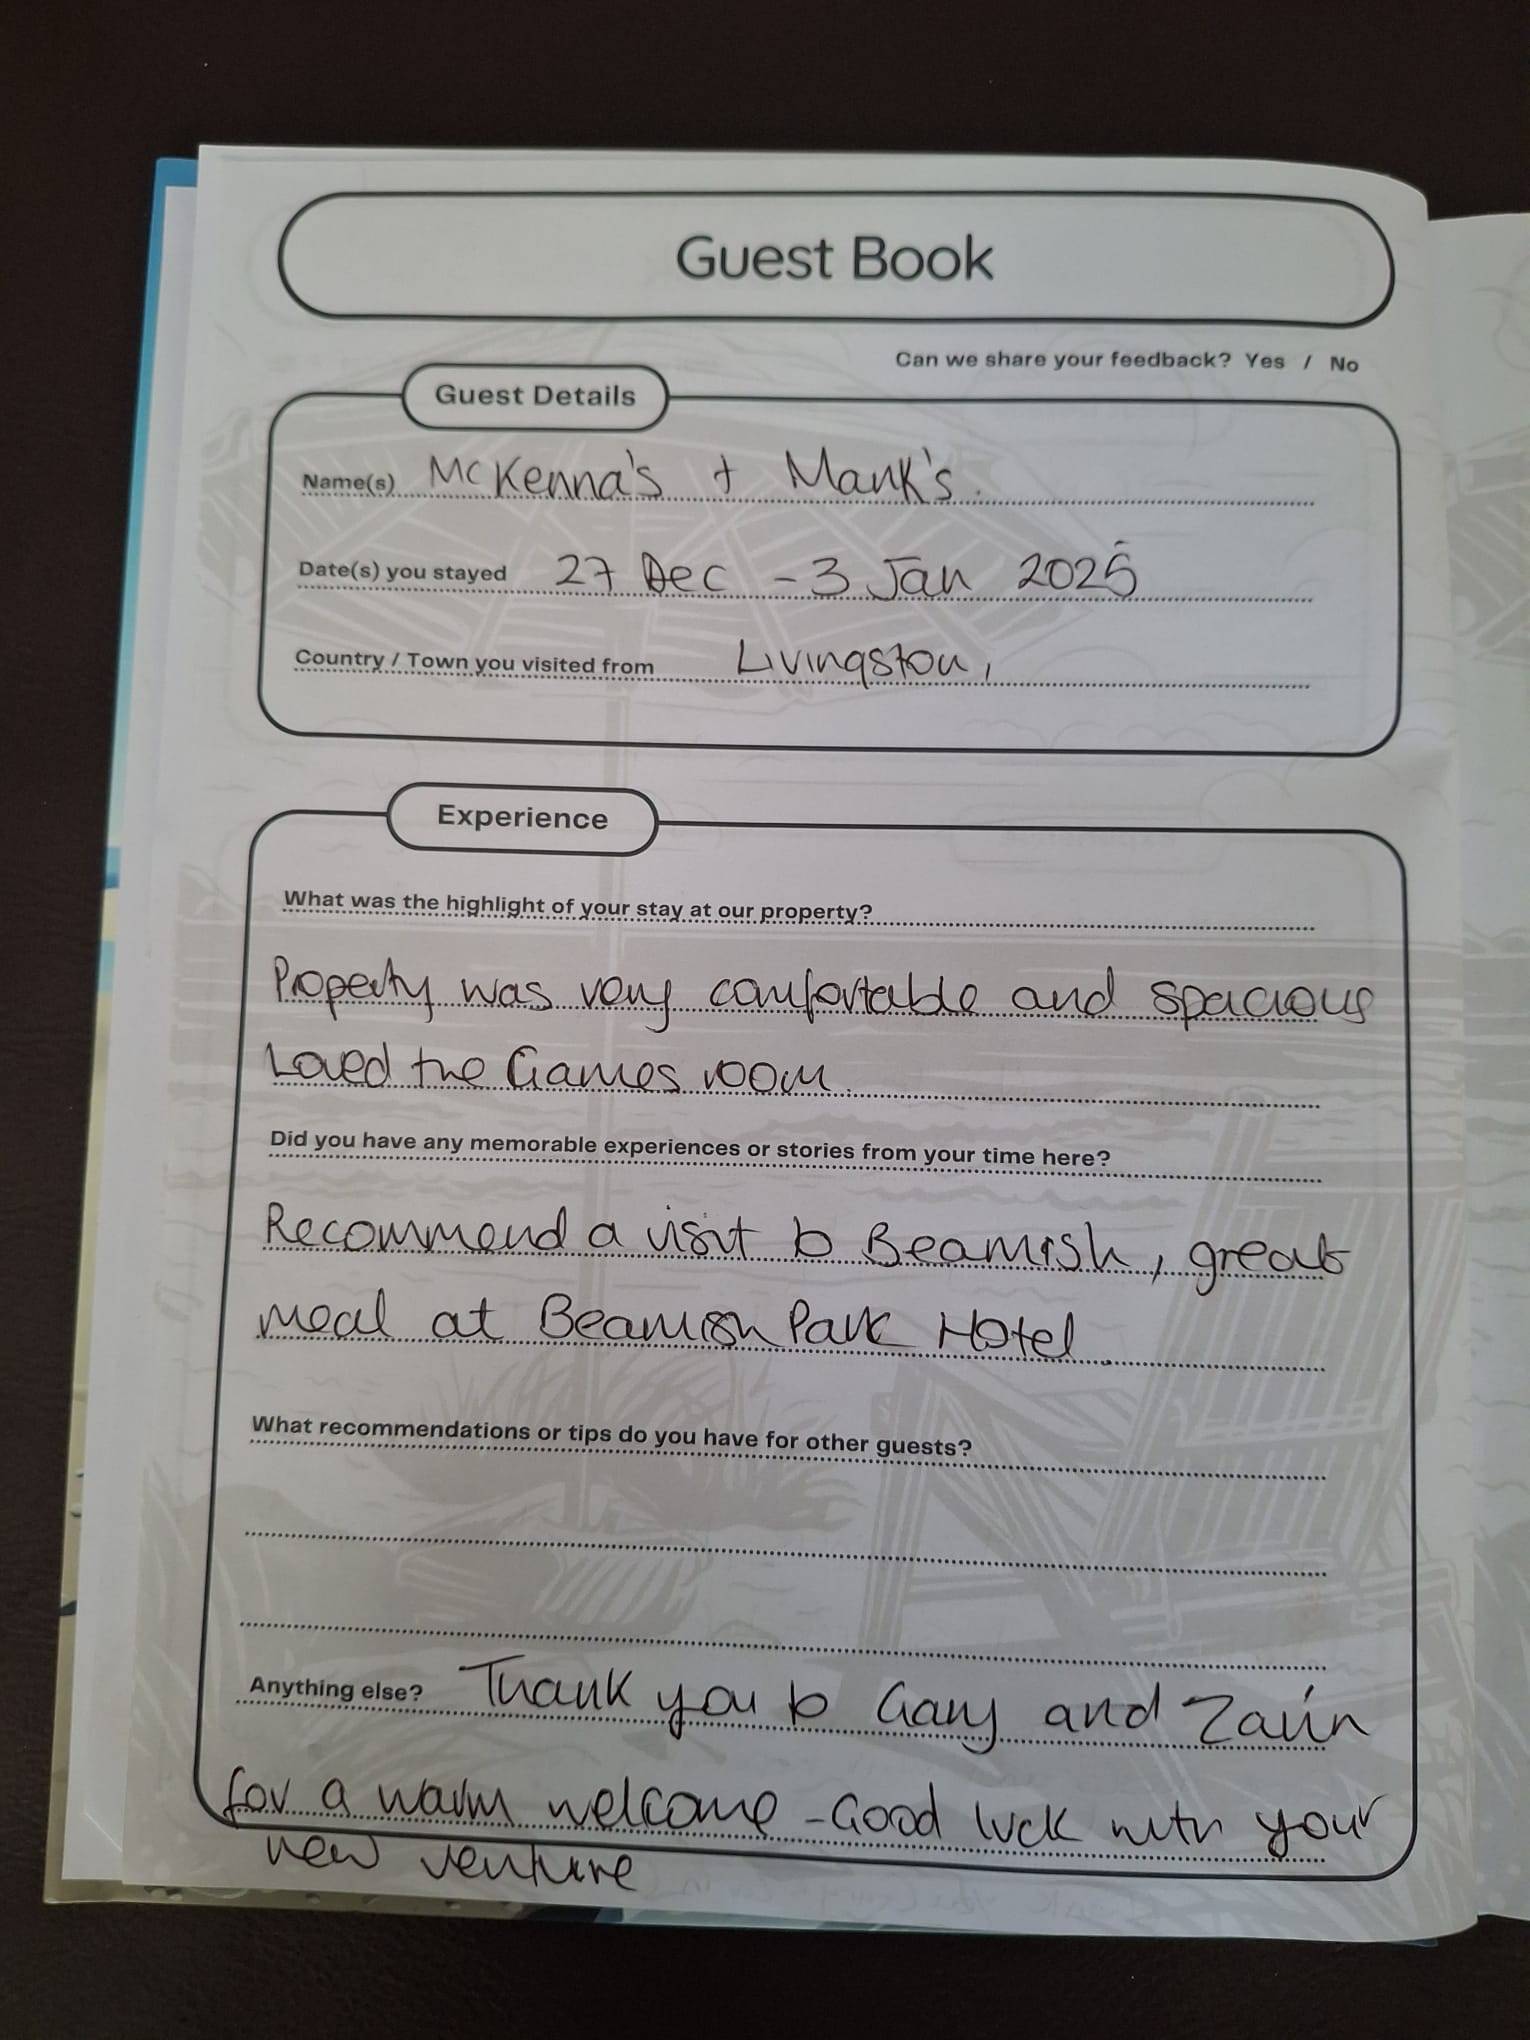 Guest Book
Can we share your feedback? Yes / No
Guest Details
Name(s) McKenna's + Mank's.
Date(s) you stayed 27 Dec - 3 Jan 2025
Country / Town you visited from Livingston,
Experience
What was the highlight of your stay at our property?
Property was very comfortable and spacious
Loved the Games room.
Did you have any memorable experiences or stories from your time here?
Recommend a visit to Beamish, great
meal at Beamish Park Hotel.
What recommendations or tips do you have for other guests?
Anything else? Thank you to Gary and Zain
for a warm welcome - Good luck with your
new venture